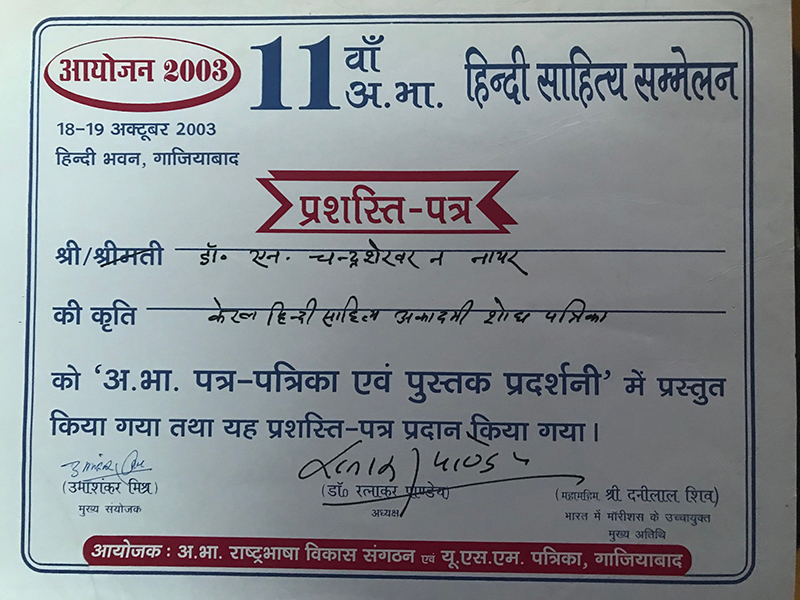 आयोजन 2003
11 वाँ अ.भा. हिन्दी साहित्य सम्मेलन
18-19 अक्टूबर 2003
हिन्दी भवन, गाजियाबाद
प्रशस्ति-पत्र
श्री/श्रीमती डॉ. एन. चन्द्रशेखर न नायर
की कृति केरल हिन्दी साहित्य अकादमी शोध पत्रिका
को ‘अ.भा. पत्र-पत्रिका एवं पुस्तक प्रदर्शनी’ में प्रस्तुत
किया गया तथा यह प्रशस्ति-पत्र प्रदान किया गया।
रत्नाकर पाण्डेय
(उमाशंकर मिश्र)
मुख्य संयोजक
(डॉ० रत्नाकर पाण्डेय)
अध्यक्ष
(महामहिम श्री दनीलाल शिव)
भारत में मॉरीशस के उच्चायुक्त
मुख्य अतिथि
आयोजक : अ.भा. राष्ट्रभाषा विकास संगठन एवं यू.एस.एम. पत्रिका, गाजियाबाद